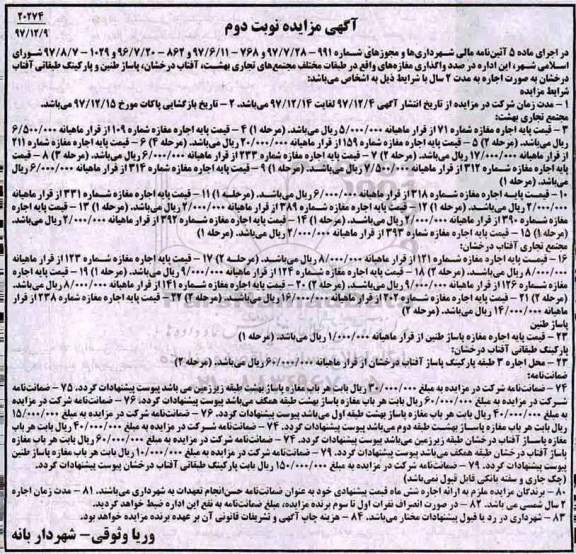 ۲۰۲۷۴
۹۷/۱۲/۹
آگهی مزایده نوبت دوم
در اجرای ماده ۵ آئین‌نامه مالی شهرداری‌ها و مجوزهای شماره ۹۹۱ – ۹۷/۷/۲۸ و ۷۶۸ – ۹۷/۶/۱۱ و ۸۶۲ – ۹۶/۷/۲۰ و ۱۰۲۹ – ۹۷/۸/۷ شورای
اسلامی شهر، این اداره در صدد واگذاری مغازه‌های واقع در طبقات مختلف مجتمع‌های تجاری بهشت، آفتاب درخشان، پاساژ طنین و پارکینگ طبقاتی آفتاب
درخشان به صورت اجاره به مدت ۲ سال با شرایط ذیل به اشخاص می‌باشد:
شرایط مزایده
۱ – مدت زمان شرکت در مزایده از تاریخ انتشار آگهی ۹۷/۱۲/۴ لغایت ۹۷/۱۲/۱۴ می‌باشد. ۲ – تاریخ بازگشایی پاکات مورخ ۹۷/۱۲/۱۵ می‌باشد.
مجتمع تجاری بهشت:
۳ – قیمت پایه اجاره مغازه شماره ۷۱ از قرار ماهیانه ۵/۰۰۰/۰۰۰ ریال می‌باشد. (مرحله ۱) ۴ – قیمت پایه اجاره مغازه شماره ۱۰۹ از قرار ماهیانه ۶/۵۰۰/۰۰۰
ریال می‌باشد. (مرحله ۲) ۵ – قیمت پایه اجاره مغازه شماره ۱۵۹ از قرار ماهیانه ۲۰/۰۰۰/۰۰۰ ریال می‌باشد. (مرحله ۴) ۶ – قیمت پایه اجاره مغازه شماره ۲۱۱
از قرار ماهیانه ۱۷/۰۰۰/۰۰۰ ریال می‌باشد. (مرحله ۲) ۷ – قیمت پایه اجاره مغازه شماره ۲۳۳ از قرار ماهیانه ۶/۰۰۰/۰۰۰ ریال می‌باشد. (مرحله ۳) ۸ – قیمت
پایه اجاره مغازه شماره ۳۱۲ از قرار ماهیانه ۷/۵۰۰/۰۰۰ ریال می‌باشد. (مرحله ۱) ۹ – قیمت پایه اجاره مغازه شماره ۳۱۴ از قرار ماهیانه ۶/۰۰۰/۰۰۰ ریال
می‌باشد. (مرحله ۱)
۱۰ – قیمت پایه اجاره مغازه شماره ۳۱۸ از قرار ماهیانه ۶/۰۰۰/۰۰۰ ریال می‌باشد. (مرحله ۱) ۱۱ – قیمت پایه اجاره مغازه شماره ۳۳۱ از قرار ماهیانه
۲/۰۰۰/۰۰۰ ریال می‌باشد. (مرحله ۱) ۱۲ – قیمت پایه اجاره مغازه شماره ۳۸۹ از قرار ماهیانه ۲/۰۰۰/۰۰۰ ریال می‌باشد. (مرحله ۱) ۱۳ – قیمت پایه اجاره
مغازه شماره ۳۹۰ از قرار ماهیانه ۲/۰۰۰/۰۰۰ ریال می‌باشد. (مرحله ۱) ۱۴ – قیمت پایه اجاره مغازه شماره ۳۹۲ از قرار ماهیانه ۲/۰۰۰/۰۰۰ ریال می‌باشد.
(مرحله ۱) ۱۵ – قیمت پایه اجاره مغازه شماره ۳۹۳ از قرار ماهیانه ۲/۰۰۰/۰۰۰ ریال می‌باشد. (مرحله ۱)
مجتمع تجاری آفتاب درخشان:
۱۶ – قیمت پایه اجاره مغازه شماره ۱۲۱ از قرار ماهیانه ۸/۰۰۰/۰۰۰ ریال می‌باشد. (مرحله ۲) ۱۷ – قیمت پایه اجاره مغازه شماره ۱۲۳ از قرار ماهیانه
۸/۰۰۰/۰۰۰ ریال می‌باشد. (مرحله ۲) ۱۸ – قیمت پایه اجاره مغازه شماره ۱۲۴ از قرار ماهیانه ۹/۰۰۰/۰۰۰ ریال می‌باشد. (مرحله ۱) ۱۹ – قیمت پایه اجاره
مغازه شماره ۱۲۶ از قرار ماهیانه ۹/۰۰۰/۰۰۰ ریال می‌باشد. (مرحله ۲) ۲۰ – قیمت پایه اجاره مغازه شماره ۱۴۱ از قرار ماهیانه ۸/۰۰۰/۰۰۰ ریال می‌باشد.
(مرحله ۲) ۲۱ – قیمت پایه اجاره مغازه شماره ۲۰۲ از قرار ماهیانه ۱۶/۰۰۰/۰۰۰ ریال می‌باشد. (مرحله ۲) ۲۲ – قیمت پایه اجاره مغازه شماره ۲۳۸ از قرار
ماهیانه ۱۴/۰۰۰/۰۰۰ ریال می‌باشد. (مرحله ۲)
پاساژ طنین
۲۳ – قیمت پایه اجاره مغازه پاساژ طنین از قرار ماهیانه ۱/۰۰۰/۰۰۰ ریال می‌باشد. (مرحله ۱)
پارکینگ طبقاتی آفتاب درخشان:
۲۳ – محل اجاره ۳ طبقه پارکینگ پاساژ آفتاب درخشان از قرار ماهیانه ۶۰/۰۰۰/۰۰۰ ریال می‌باشد. (مرحله ۲)
ضمانت‌نامه:
۷۴ – ضمانت‌نامه شرکت در مزایده به مبلغ ۳۰/۰۰۰/۰۰۰ ریال بابت هر باب مغازه پاساژ بهشت طبقه زیرزمین می باشد پیوست پیشنهادات گردد. ۷۵ – ضمانت‌نامه
شرکت در مزایده به مبلغ ۶۰/۰۰۰/۰۰۰ ریال بابت هر باب مغازه پاساژ بهشت طبقه همکف می‌باشد پیوست پیشنهادات گردد. ۷۶ – ضمانت‌نامه شرکت در مزایده
به مبلغ ۴۰/۰۰۰/۰۰۰ ریال بابت هر باب مغازه پاساژ بهشت طبقه اول می‌باشد پیوست پیشنهادات گردد. ۷۶ – ضمانت‌نامه شرکت در مزایده به مبلغ ۱۵/۰۰۰/۰۰۰
ریال بابت هر باب مغازه پاساژ بهشت طبقه دوم می‌باشد پیوست پیشنهادات گردد. ۷۴ – ضمانت‌نامه شرکت در مزایده به مبلغ ۴۰/۰۰۰/۰۰۰ ریال بابت هر باب
مغازه پاساژ آفتاب درخشان طبقه زیرزمین می‌باشد پیوست پیشنهادات گردد. ۷۴ – ضمانت‌نامه شرکت در مزایده به مبلغ ۶۰/۰۰۰/۰۰۰ ریال بابت هر باب مغازه
پاساژ آفتاب درخشان طبقه همکف می‌باشد پیوست پیشنهادات گردد. ۷۹ – ضمانت‌نامه شرکت در مزایده به مبلغ ۱۰/۰۰۰/۰۰۰ ریال بابت هر باب مغازه پاساژ طنین
پیوست پیشنهادات گردد. ۷۹ – ضمانت‌نامه شرکت در مزایده به مبلغ ۱۵۰/۰۰۰/۰۰۰ ریال بابت پارکینگ طبقاتی آفتاب درخشان پیوست پیشنهادات گردد.
(چک جاری و سفته بانکی قابل قبول نمی‌باشد)
۸۰ – برندگان مزایده ملزم به ارائه اجاره شش ماه قیمت پیشنهادی خود به عنوان ضمانت‌نامه حسن‌انجام تعهدات به شهرداری می‌باشند. ۸۱ – مدت زمان اجاره
۲ سال شمسی می باشد. ۸۲ – در صورت انصراف نفرات اول تا سوم برنده مزایده، مبلغ ضمانت‌نامه به نفع این اداره ضبط خواهد گردید.
۸۳ – شهرداری در رد یا قبول پیشنهادات مختار می‌باشد. ۸۴ – هزینه چاپ آگهی و تشریفات قانونی آن بر عهده برنده مزایده خواهد بود.
وریا وثوقی – شهردار بانه